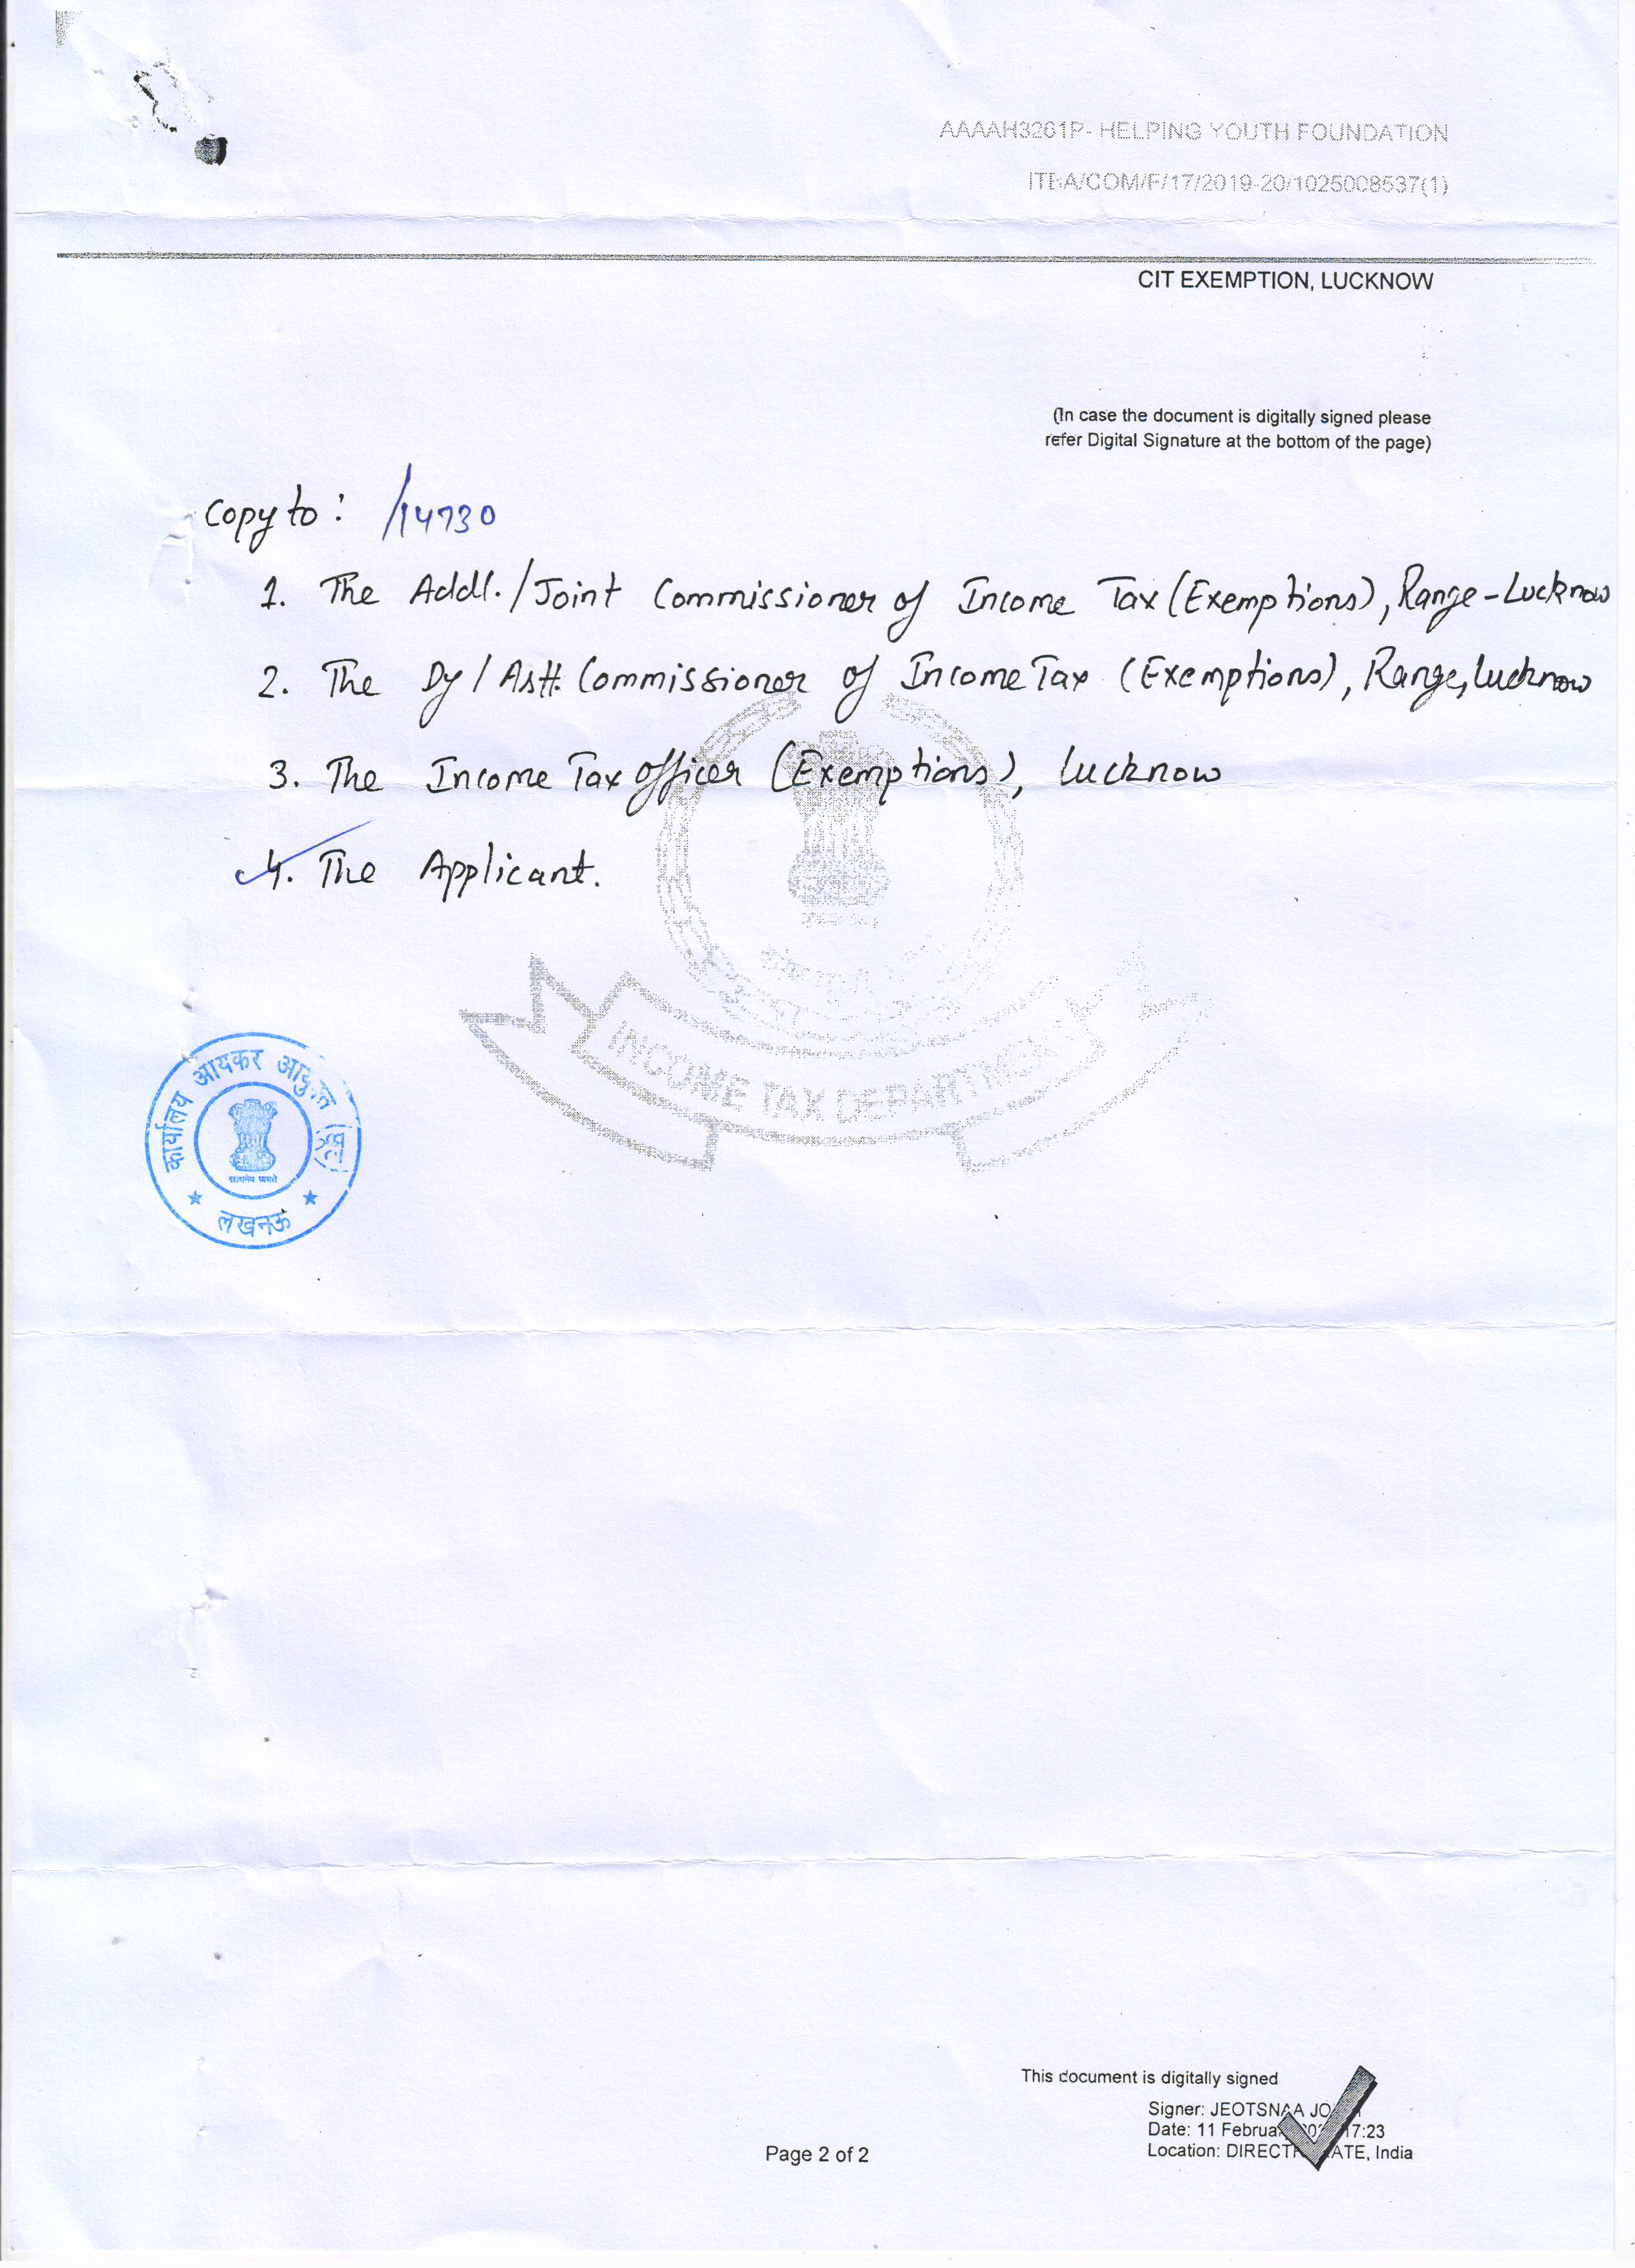 AAAAH3261P- HELPING YOUTH FOUNDATION
ITBA/COM/F/17/2019-20/1025008537(1)
CIT EXEMPTION, LUCKNOW
(In case the document is digitally signed please
refer Digital Signature at the bottom of the page)
Copy to : /14730
1. The Addl./Joint Commissioner of Income Tax (Exemptions), Range-Lucknow
2. The Dy/Astt. Commissioner of Income Tax (Exemptions), Range, Lucknow
3. The Income Tax Officer (Exemptions), Lucknow
4. The Applicant.
INCOME TAX DEPARTMENT
कार्यालय आयकर आयुक्त (छूट)
सत्यमेव जयते
लखनऊ
This document is digitally signed
Signer: JEOTSNAA
Date: 11 17:23
Location: India
Page 2 of 2